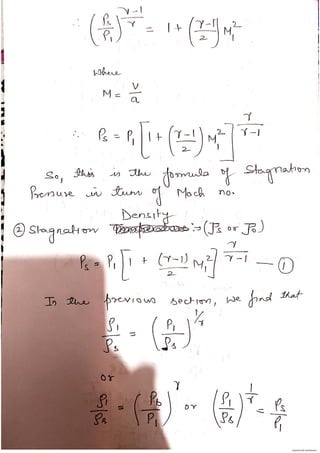 ∴ (Ps/P1)^(γ-1)/γ = 1 + (γ-1/2) M1²
where
M = V/a
∴ Ps = P1 [1 + (γ-1/2) M1²]^γ/γ-1
So, this is the formula of Stagnation
Pressure in term of Mach no.
Density
② Stagnation Temperature :- (ρs or ρo)
Ps = P1 [1 + (γ-1)/2 M1²]^γ/γ-1 — ①
In the previous section, we find that
ρ1/ρs = (P1/Ps)^1/γ
or
ρ1/ρs = (Pb/P1)^γ or (ρ1/ρs)^1/γ = Ps/P1